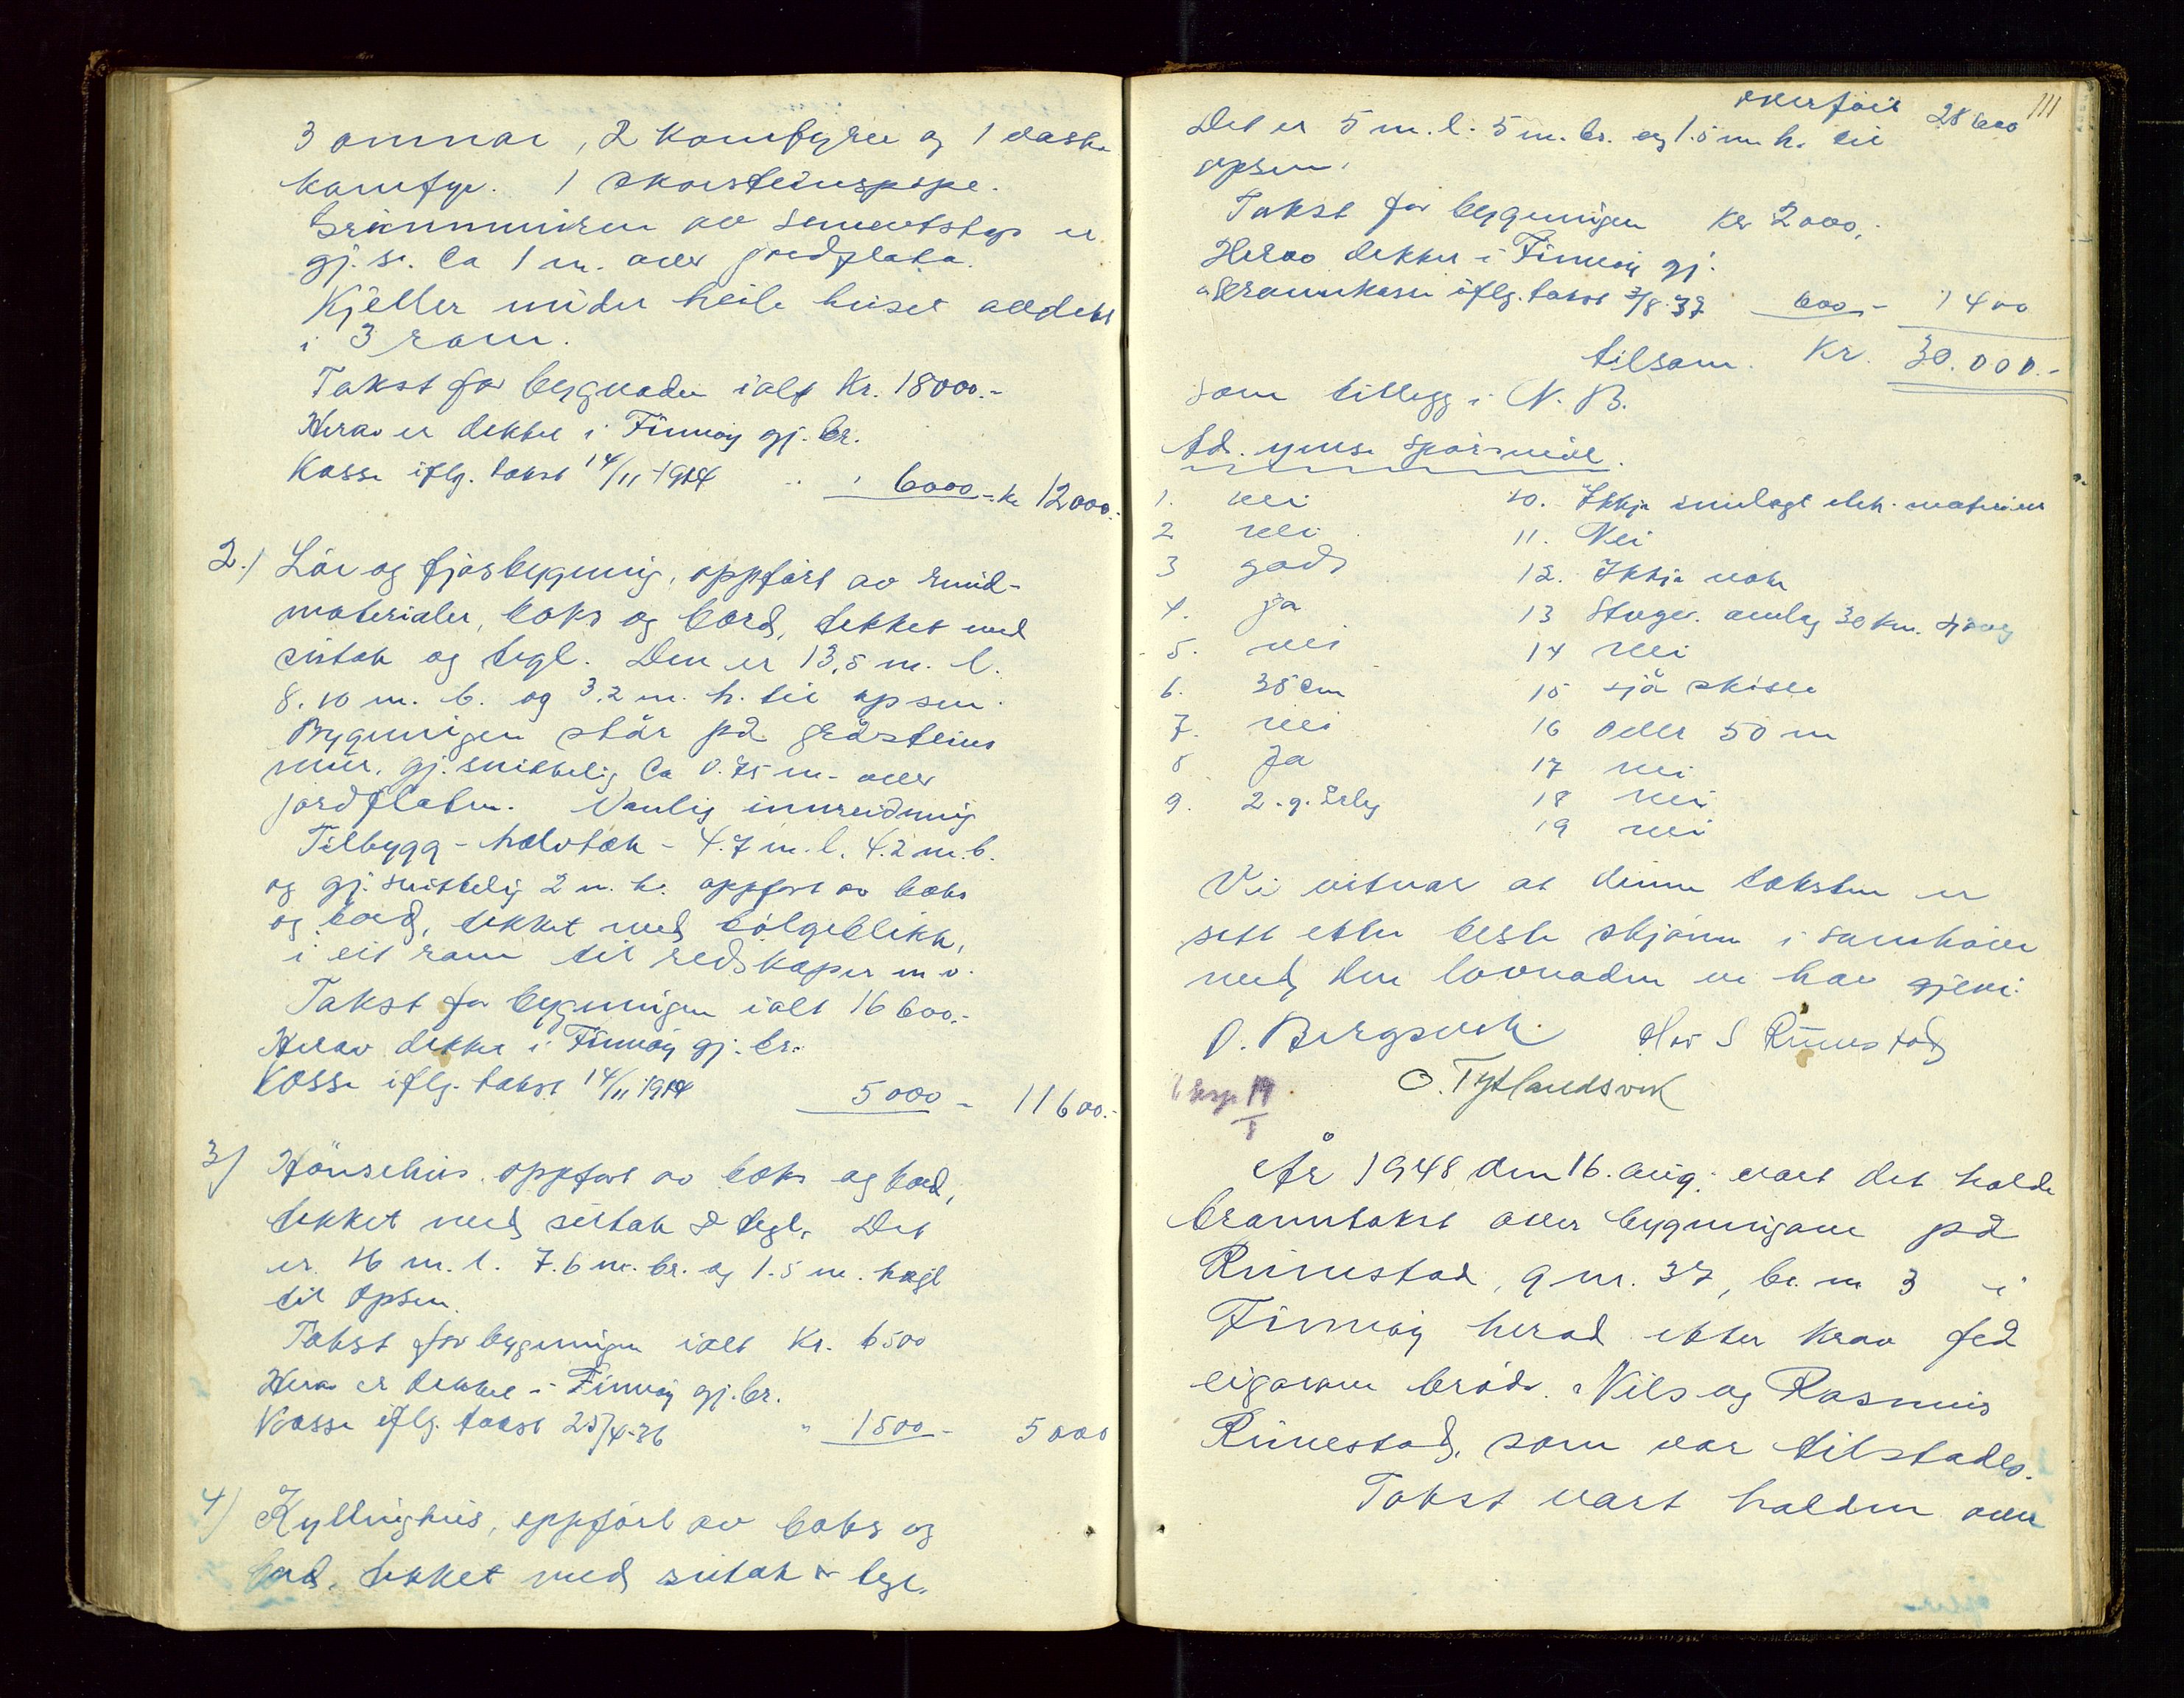 3 omnar, 2 komfyrer og 1 vaske
komfyr. 1 skorsteinspipe.
Grunnmuren av sementstøp er
gj. sn. ca 1 m. over jordflata.
Kjeller under heile huset avdelt
i 3 rom.
Takst for bygnaden ialt Kr. 18000.-
Herav er dekket i Finnøy gj. br.
Kasse iflg. takst 14/11-1914 " 6000.- kr 12000.-
2.) Löe og fjøsbygning, oppført av rund-
materialer, boks og bord, tekket med
sutak og tegl. Den er 13,5 m. l.
8.10 m. b. og 3.2 m. h. til opsen.
Bygningen står på gråsteins
mur, gj. snittelig ca 0.75 m. over
jordflaten. Vanlig innreidning
Tilbygg - halvtak - 4.7 m. l. 4.2 m. b.
og gj. snittelig 2 m. h. oppført av boks
og bord, tekket med bölgeblikk,
i eit rom til redskaper m v.
Takst for bygningen ialt 16600.-
Herav dekket i Finnøy gj. br.
Kasse iflg. takst 14/11 1914 5000 - 11600.-
3) Hönsehus oppført av boks og bord,
tekket med sutak & tegl. Det
er 16 m. l. 7.6 m. br. og 1.5 m. høgt
til opsen.
Takst for bygningen ialt Kr. 6500
Herav er dekket i Finnøy gj. br.
Kasse iflg. takst 25/4-36 " 1500 - 5000
4) Kyllinghus, oppført av boks og
bord, tekket med sutak & tegl.
overført 28600 111
Det er 5 m. l. 5 m. br. og 1.5 m h. til
opsen.
Takst for bygningen Kr 2000,-
Herav dekket i Finnøy gj.
brannkasse iflg. takst 7/8-37 600,- 1400
tilsam. Kr. 30.000.-
som tillegg i N. B.
Ad. ymse spørsmål.
1. nei 10. Ikkje innlagt elek. materiar
2 nei 11. Nei
3 god 12. Ikkje nok
4. ja 13 Stvgr. omlag 30 km. sjøveg
5. nei 14 nei
6. 38 cm 15 sjå skisse
7. nei 16 over 50 m
8 Ja 17 nei
9. 2. g. årleg 18 nei
19 nei
Vi vitnar at denne taksten er
sett etter beste skjønn i samhøve
med den lovnaden me har gjevi.
O. Bergsvik. Olav S Rimestad
O. Tytlandsvik
Eksp. 19/8
År 1948 den 16. aug. vart det halde
branntakst over bygningane på
Rimestad, g nr. 37, br. nr 3 i
Finnøy herad etter krav frå
eigarane brødr. Nils og Rasmus
Rimestad, som var tilstades.
Takst vart halden over